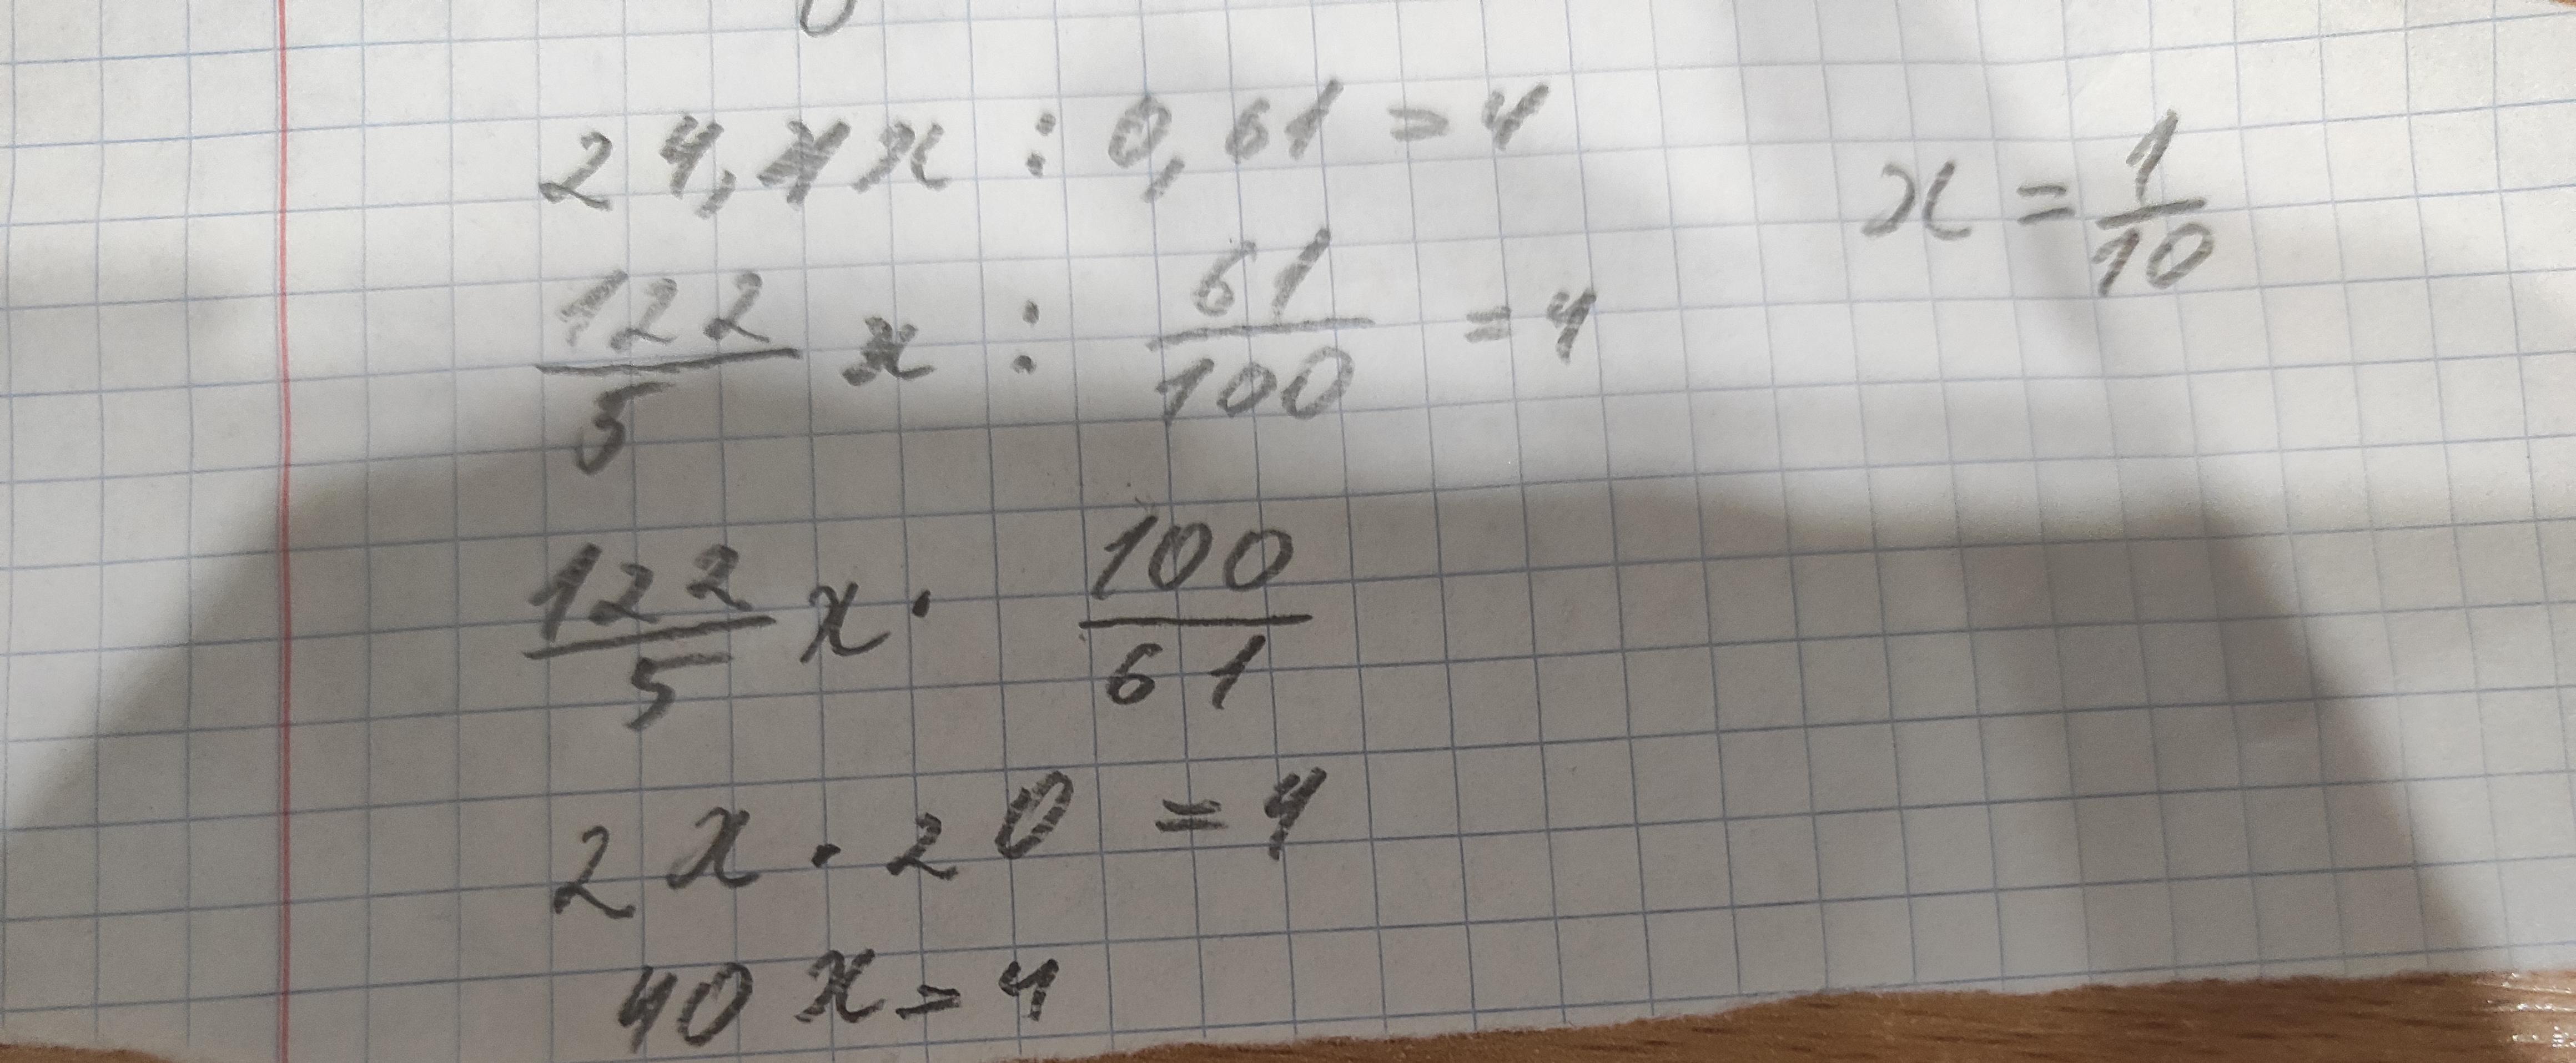 24,4x : 0,61 = 4
122/5 x : 61/100 = 4
122/5 x · 100/61
2x · 20 = 4
40x = 4
x = 1/10